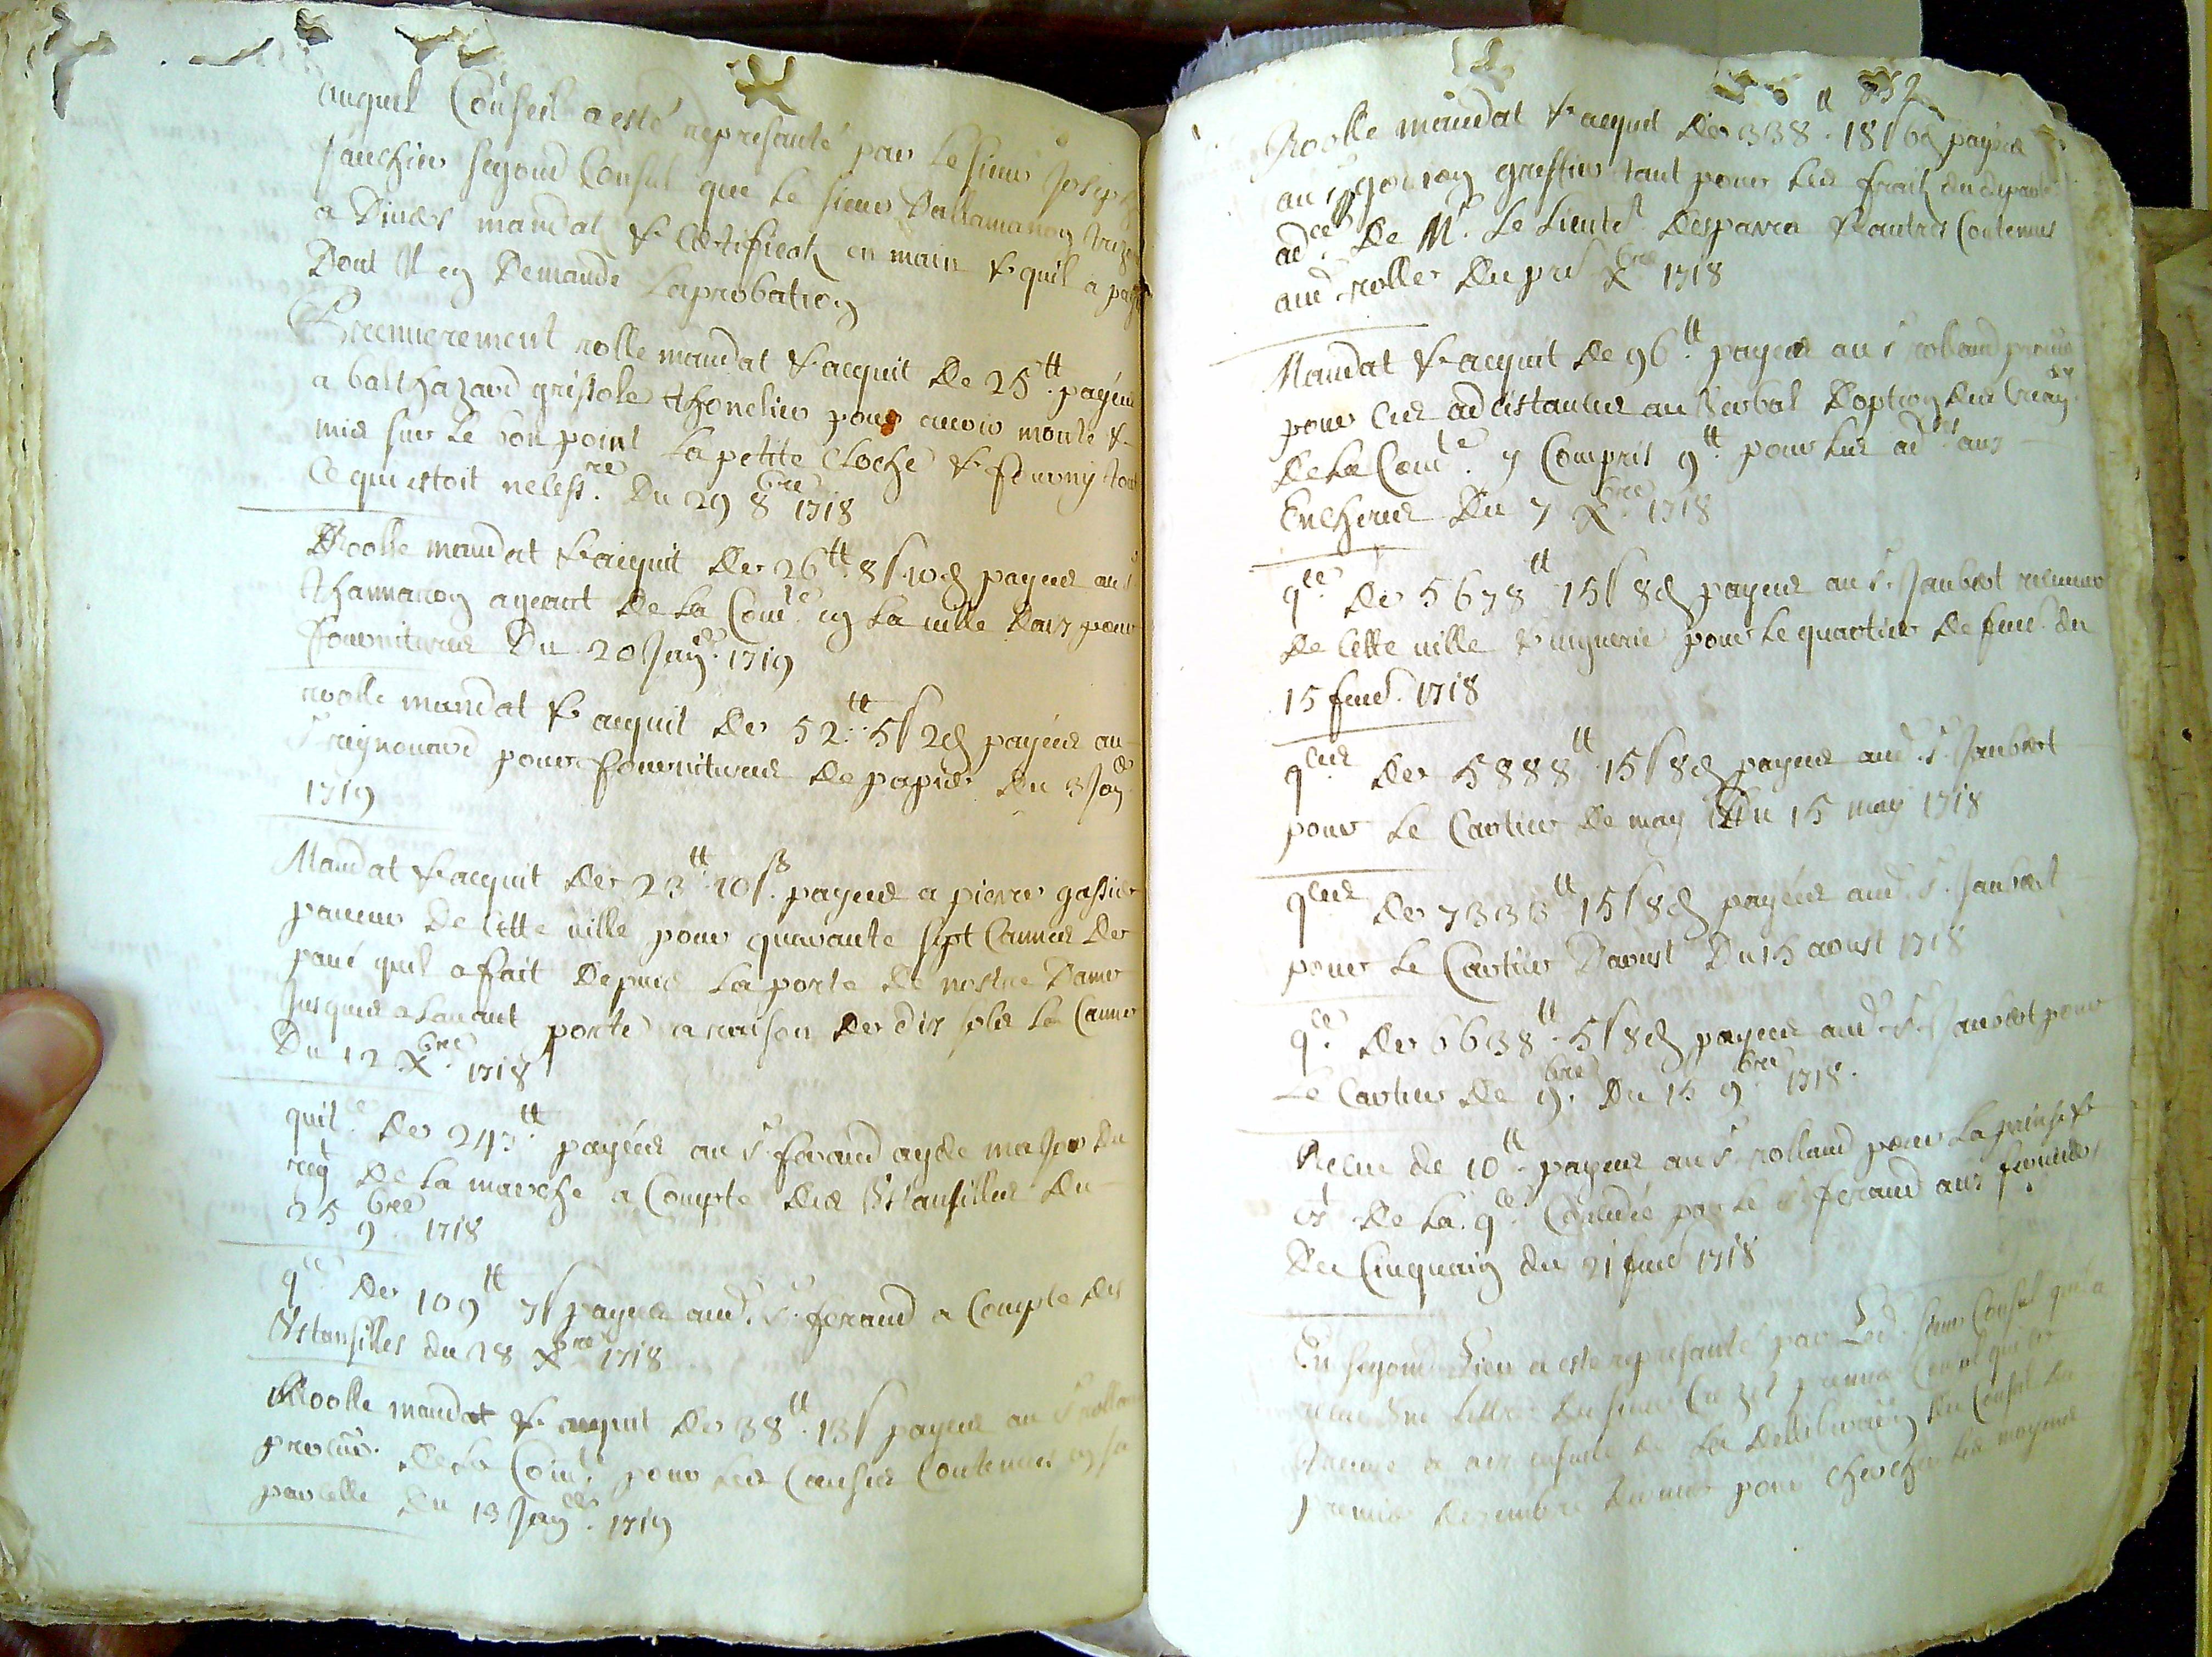 auquel Conseil a esté representé par le sieur Joseph
Jauchier segond Consul que le sieur Dallamanon
a Divers mandatz & Certificatz en main & quil a payé
Dont Il en Demande Laprobation
Premierement rolle mandat & acquit De 25ᵗᵗ payées
a balthazard grisole thonelier pour avoir monté &
mis sur le bon point La petite Cloche & fourny tout
Ce qui estoit necessʳᵉ Du 29 8ᵇʳᵉ 1718
Roolle mandat & acquit De 26ᵗᵗ 8s 10d payées au sʳ
thamaron ageant De La Comᵗᵉ en La ville Daix pour
fournitures Du 20 Janᵉʳ 1719
roolle mandat & acquit De 52ᵗᵗ 5s 2d payées au
sʳ raynouard pour fournitures De papier Du 3 Janᵉʳ
1719
Mandat & acquit De 23ᵗᵗ 10s payées a pierre gassier
paveur De Cette ville pour quarante sept Cannes De
pavé quil a fait Depuis La porte De nostre Dame
Jusques a Lavant porte a raison De dix sols La Canne
Du 12 Xᵇʳᵉ 1718
quitᶜᵉ De 243ᵗᵗ payées au sʳ feraud ayde major du
regᵗ De La marche a Compte Des Ustansilles Du
25 9ᵇʳᵉ 1718
qᶜᵉ De 109ᵗᵗ 7s payées audᵗ sʳ feraud a Compte des
Ustansilles du 28 Xᵇʳᵉ 1718
Roolle mandat & acquit De 38ᵗᵗ 13s payées au sʳ rolland
procur. De La Comᵗᵉ pour Les Causes Contenues en sa
parcelle du 13 Janᵉʳ 1719
852
Roolle mandat & acquit De 338ᵗᵗ 18s 6d payées
au sʳ greffier tant pour Les fraix du
adᶜᵉ De Mʳ Le Lieutᵗ Desparra & autres Contenus
aud rolle Du prᵉʳ Xᵇʳᵉ 1718
Mandat & acquit De 96ᵗᵗ payées au sʳ rolland procur
pour Les adcistances au Verbal Doption Des Creanʳˢ
De La Comᵗᵉ y Compris 9ᵗᵗ pour Les adᶜᵉˢ aux
Encheres Du 7 Xᵇʳᵉ 1718
qᶜᵉ De 5678ᵗᵗ 15s 8d payées au sʳ Jaubert receveur
De Cette ville & viguerie pour Le quartier De fevᵉʳ du
15 fevᵉʳ 1718
qᶜᵉˢ De 5888ᵗᵗ 15s 8d payées audᵗ sʳ Jaubert
pour Le Cartier De may Du 15 may 1718
qᶜᵉˢ De 7333ᵗᵗ 15s 8d payées audᵗ sʳ Jaubert
pour Le Cartier Daoust Du 15 aoust 1718
qᶜᵉ De 6638ᵗᵗ 5s 8d payées audᵗ sʳ Jaubert pour
Le Cartier De 9ᵇʳᵉ Du 15 9ᵇʳᵉ 1718
Receu de 10ᵗᵗ payées au sʳ rolland pour La prinse &
exᵗ De La qᶜᵉ par Le sʳ feraud aux
Du Cinquain du 21 fevᵉʳ 1718
En segond Lieu a esté representé par Led. sieur Consul quil a
receu Une Lettre Du sieur Cruzel premier Consul qui se
treuve a aix ensuite de La Deliberation du Conseil du
premier Desembre Dernier pour Chercher Les moyens